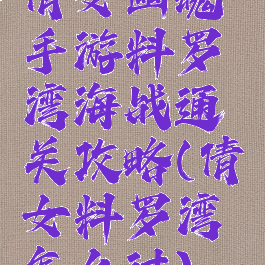 倩女幽魂
手游料罗
湾海战通
关攻略(倩
女料罗湾
怎么过)